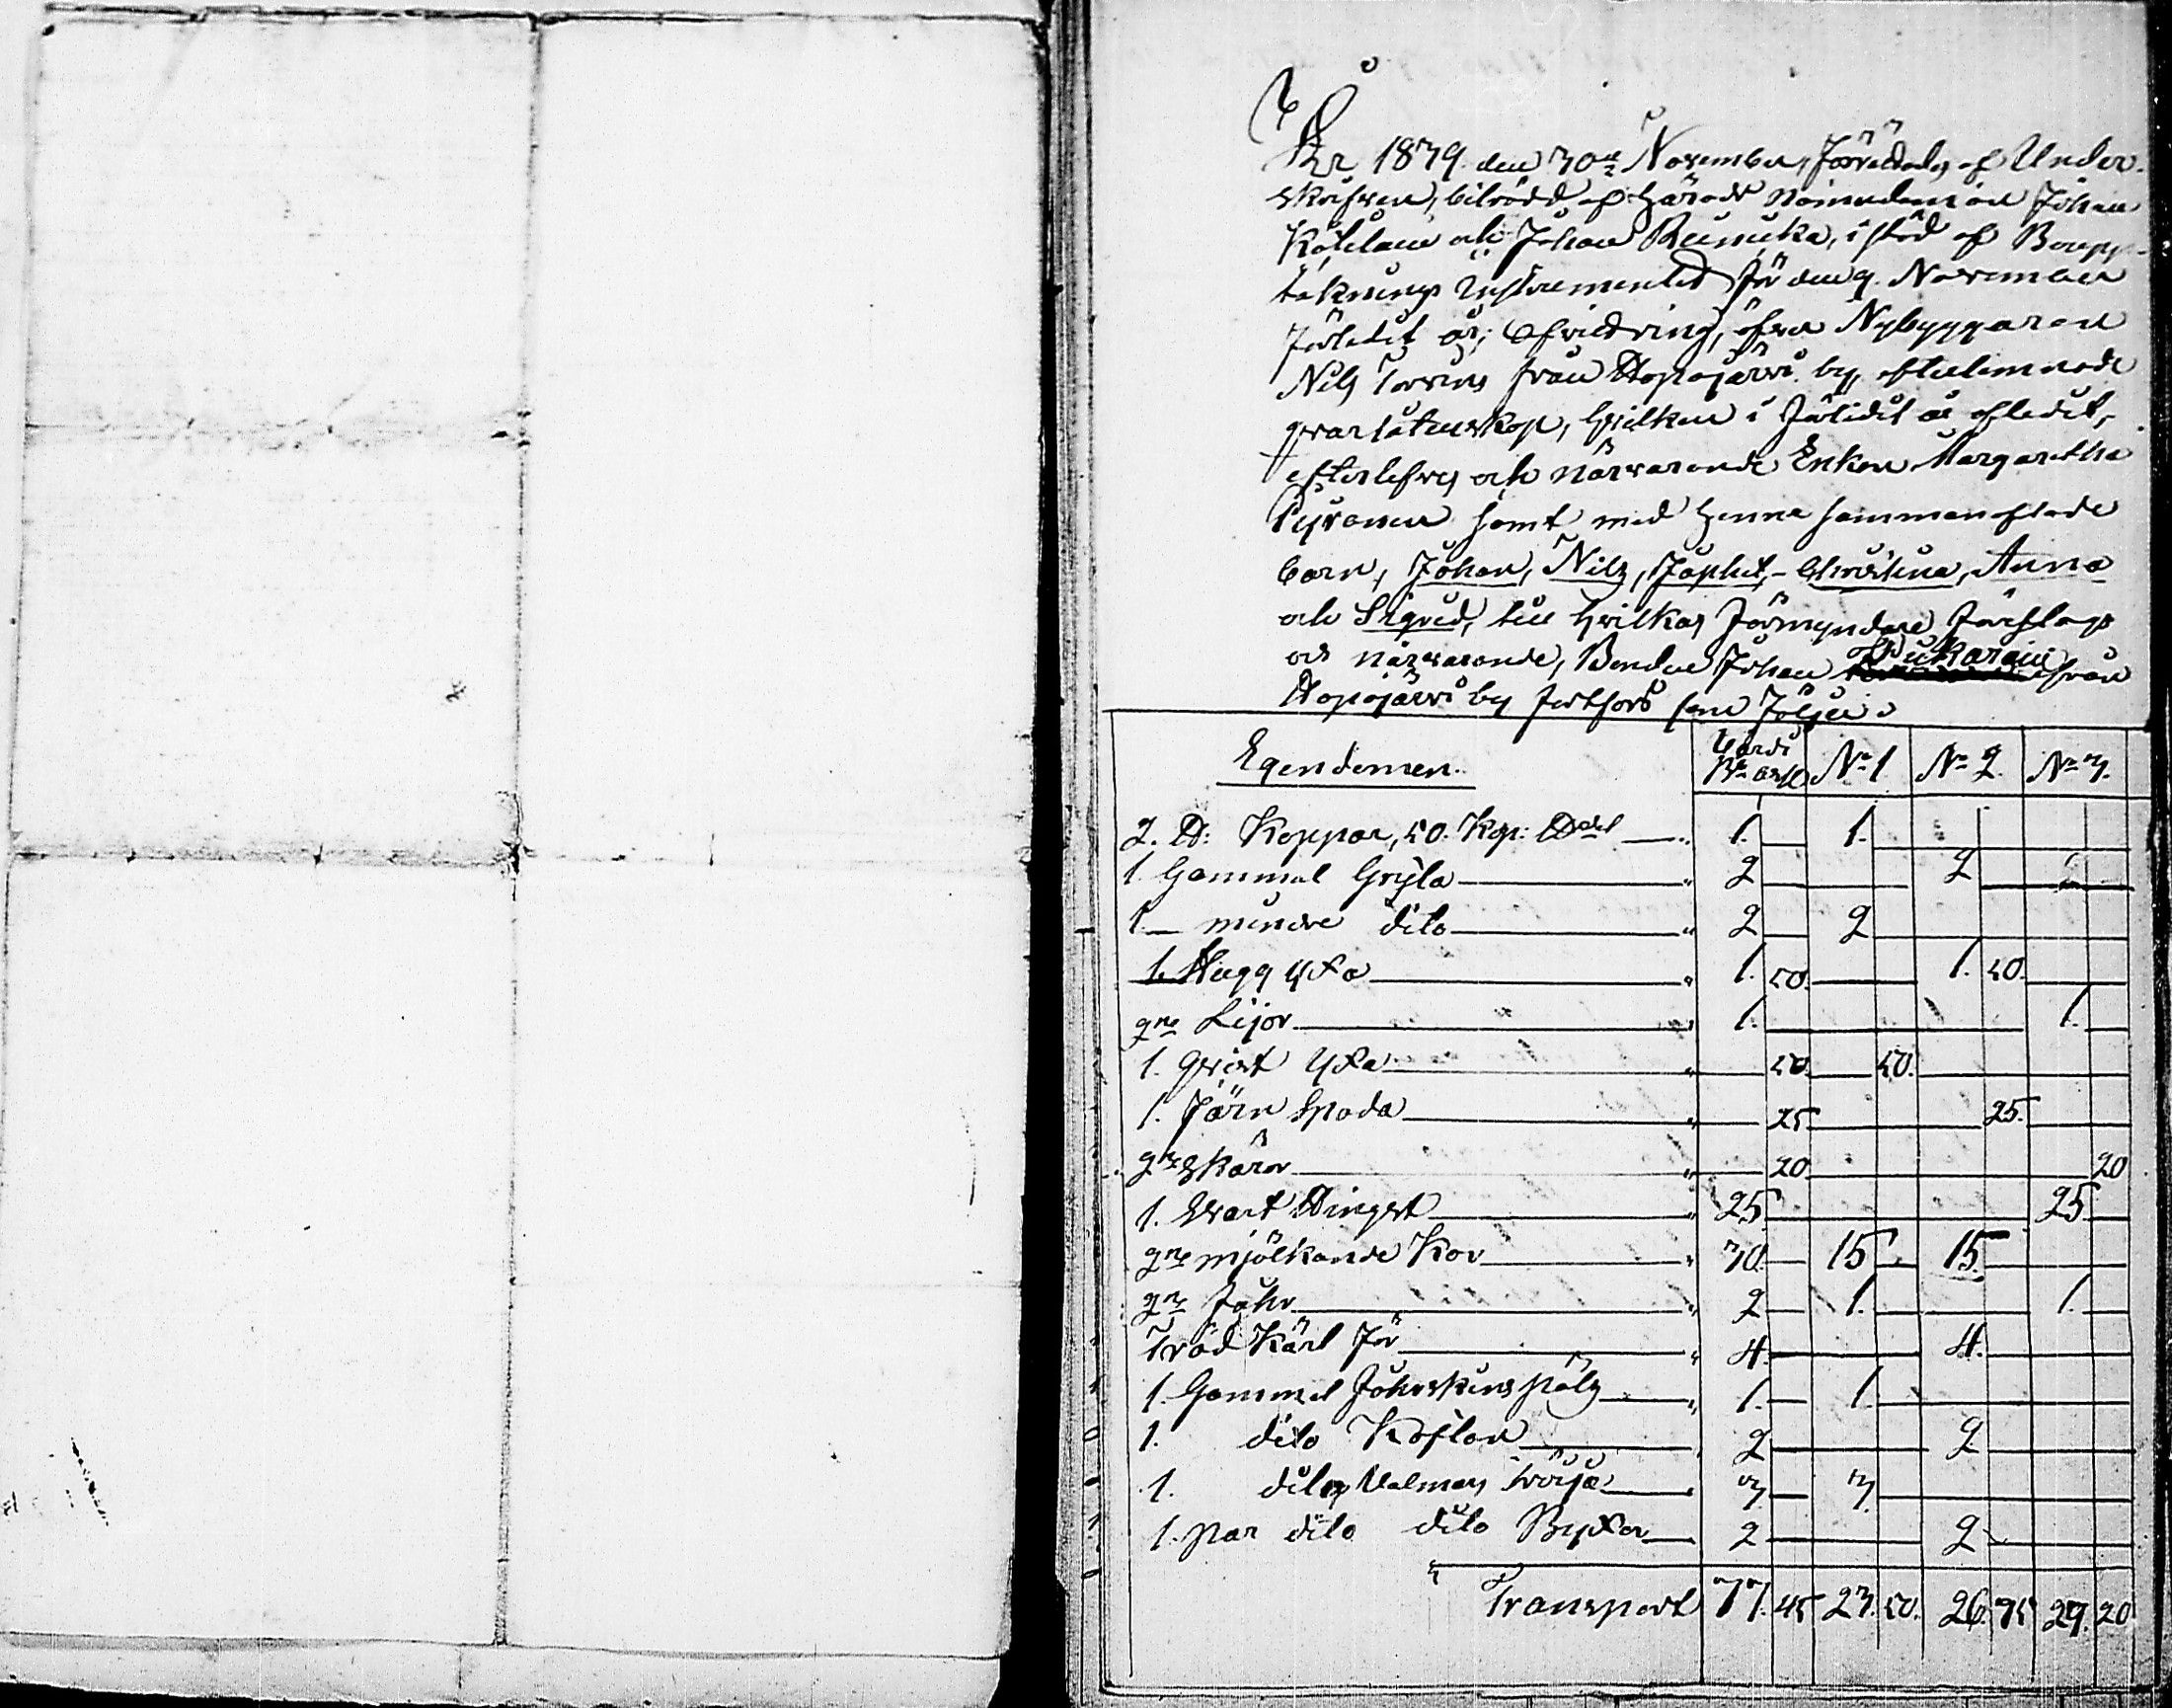 År 1839. den 30de November, förrättades af Under-
skrifven, biträdd af Härads Nämndemän Johan
och Johan i stöd af Boupp-
teknings Instrumentet för den 9. November
förledit år, afvittring, öfver Nybyggaren
Nils från Hopojärvi by, efterlemnade
qvarlåtenskap, hvilken i förledit år afledit,
efterlefves och närvarande Enkan Margaretha
samt med henne sammanaflade
barn, Johan, Nils, Japhet, Christina, Anna
och Sigrid, till hvilkas Förmyndare föreslogs
och närvarande, Bonden Johan från
Hopojärvi by fortfors som följer:
Egendomen. Värde No 1 No 2. No 3.
2. ℔: Koppar, 50. Kop: 1. 1.
1. Gammal Gryta 2 2
1 mindre dito 2 2
1. Hugg yxa 1. 50. 1. 50.
2ne Lijor 1. 1.
1. qvist yxa 50. 50.
1. Järn spada 25 25.
2ne skäror 20 20
1. Svart Hingst 25 25
2ne mjölkande Kor 30 15 15.
2ne Fåhr 2 1. 1.
Träd Kärl för 4. 4.
1. Gammal Fåhrskins päls 1. 1.
1. dito Koftan 2 2
1. dito Valmars tröija 3 3.
1. par dito dito Byxor 2 2
Transport 77. 45 23. 50. 26. 75 27. 20